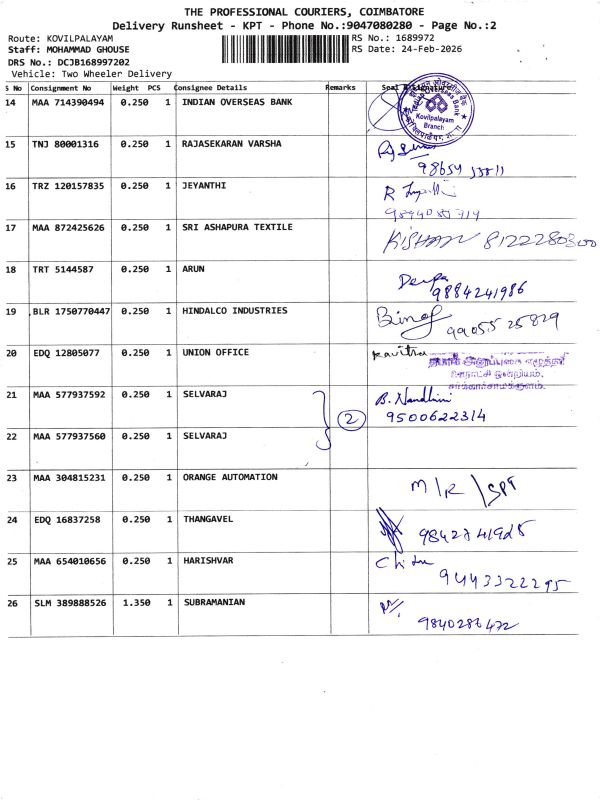 THE PROFESSIONAL COURIERS, COIMBATORE
Delivery Runsheet - KPT - Phone No.:9047080280 - Page No.:2
Route: KOVILPALAYAM RS No.: 1689972
Staff: MOHAMMAD GHOUSE RS Date: 24-Feb-2026
DRS No.: DCJB168997202
Vehicle: Two Wheeler Delivery
S No Consignment No Weight PCS Consignee Details Remarks Seal & Signature
14 MAA 714390494 0.250 1 INDIAN OVERSEAS BANK
Indian Overseas Bank
Kovilpalayam
Branch
15 TNJ 80001316 0.250 1 RAJASEKARAN VARSHA
16 TRZ 120157835 0.250 1 JEYANTHI
R
17 MAA 872425626 0.250 1 SRI ASHAPURA TEXTILE
KISHAN 8122280300
18 TRT 5144587 0.250 1 ARUN
Deepa
9884241986
19 BLR 1750770447 0.250 1 HINDALCO INDUSTRIES
99055 25829
20 EDQ 12805077 0.250 1 UNION OFFICE
Kavitha
21 MAA 577937592 0.250 1 SELVARAJ
B. Nandhini
9500622314
2
22 MAA 577937560 0.250 1 SELVARAJ
23 MAA 304815231 0.250 1 ORANGE AUTOMATION
24 EDQ 16837258 0.250 1 THANGAVEL
98427 41925
25 MAA 654010656 0.250 1 HARISHVAR
Chitra
9443322295
26 SLM 389888526 1.350 1 SUBRAMANIAN
9840286472